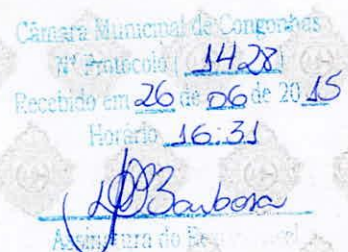 Câmara Municipal de Congonhas
Nº Protocolo ( 1428 )
Recebido em 26 de 06 de 2015
Horário 16:31
Barbosa
Assinatura do